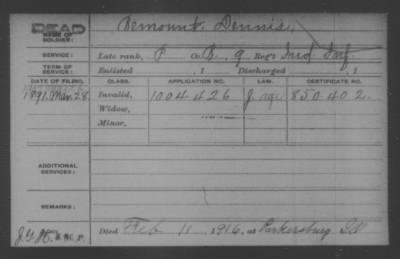 DEAD
NAME OF SOLDIER: Demount, Dennis,
SERVICE: Late rank, P Co. B, 9 Reg't Ind. Inf.
TERM OF SERVICE: Enlisted , 1 Discharged , 1
DATE OF FILING. CLASS. APPLICATION NO. LAW. CERTIFICATE NO.
1891, Mar. 28 Invalid, 1004426 J. 850.402.
Widow,
Minor,
ADDITIONAL SERVICES:
REMARKS:
Died Feb 11, 1916, at Parkersburg Ill